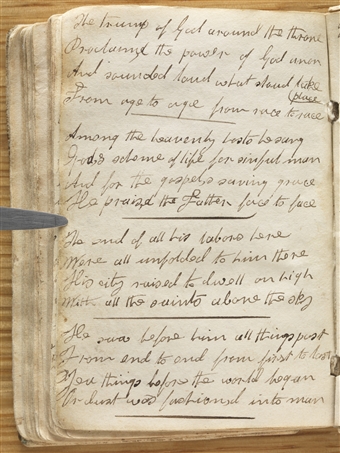 The trump of God around the throne
Proclaimd the power of God anon
And sounded loud what shoud take
place
From age to age from race to race
Among the heavenly hosts he sang
God,s scheme of life for sinful man
And for the gospels saving grace
He praizd the Father face to face
The end of all his labors here
Were all unfolded to him there
His city raised to dwell on high
With all the saints above the sky
He saw before him all things past
From end to end from first to last
Yea things before the world began
Or dust was fashioned into man